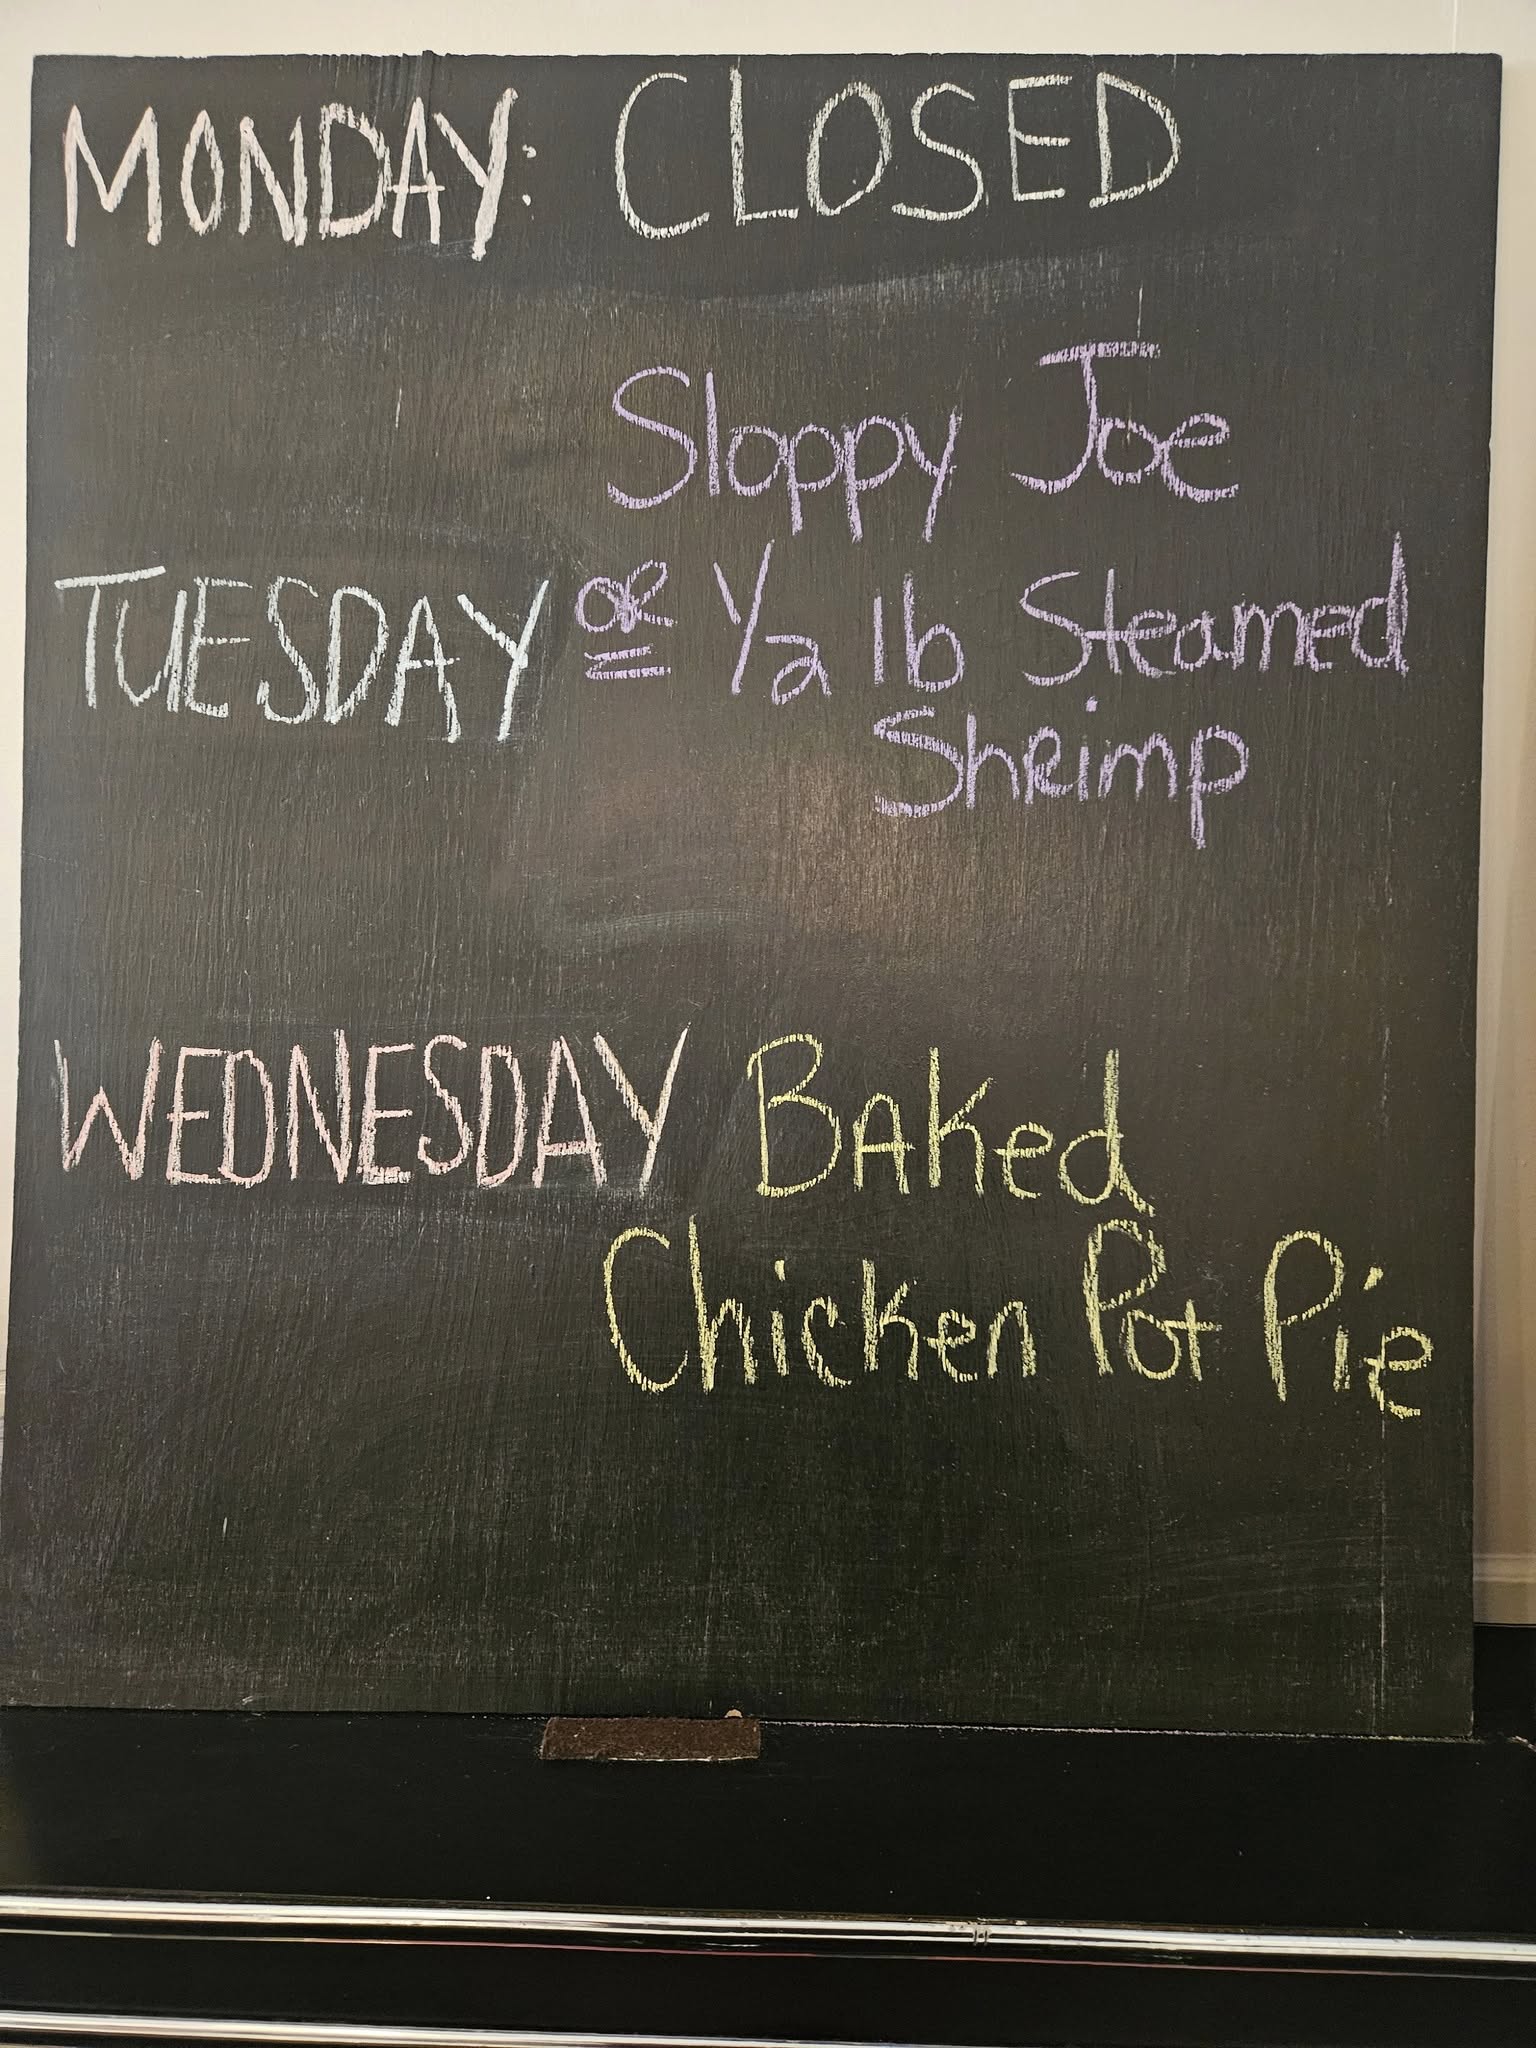 MONDAY: CLOSED
Sloppy Joe
TUESDAY OR 1/2 lb Steamed
Shrimp
WEDNESDAY Baked
Chicken Pot Pie